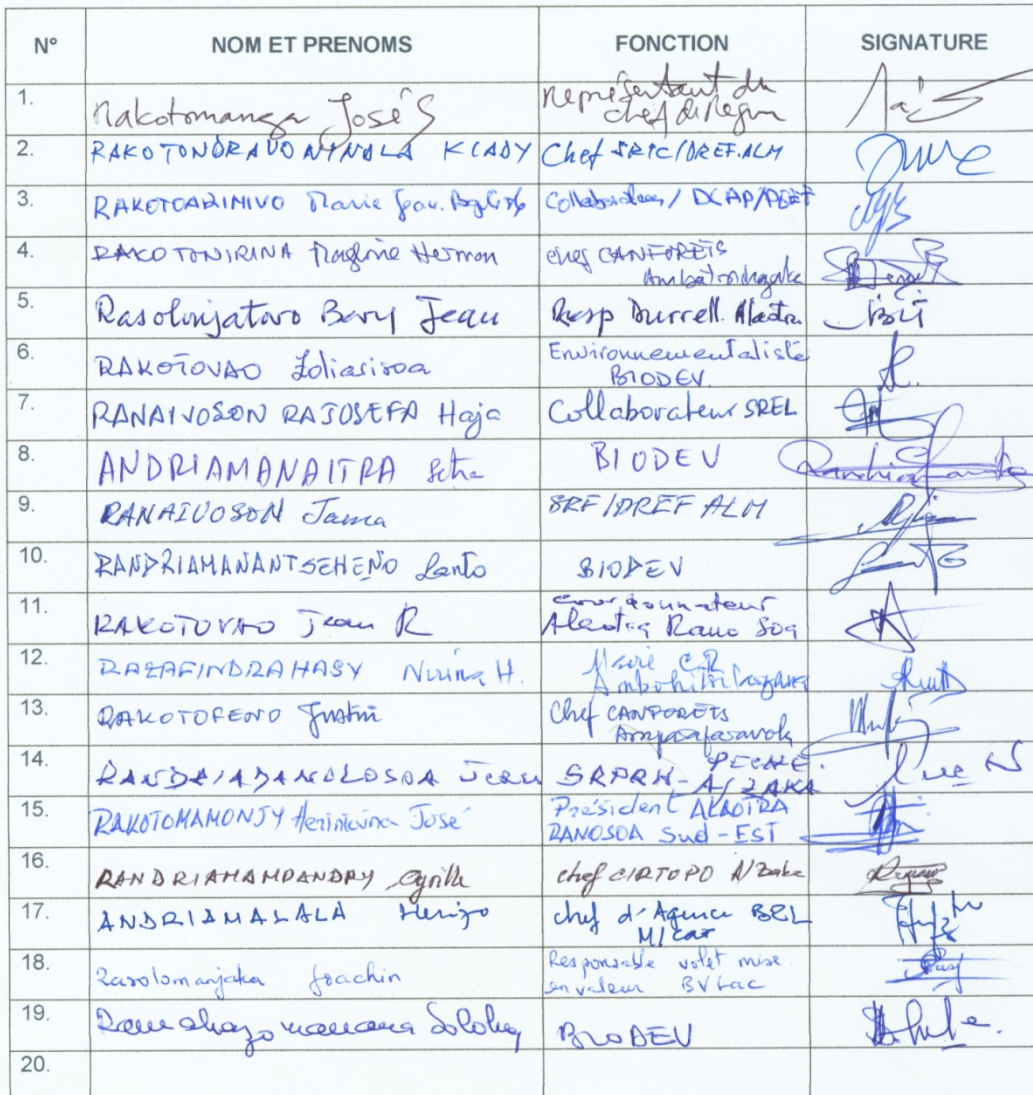 N° NOM ET PRENOMS FONCTION SIGNATURE
1. Rakotomanga José Représentant du
chef de Région
2. RAKOTONDRAVONINALA KLADY Chef SRIC/DREF.ALM
3. RAKOTOARIMIVO Marie Collaborateur / DCAP/
4. RAKOTONIRINA Herman chef CANFORETS
Ambatondrazaka
5. Rasolonjatovo Bery Jean Resp Durrell Alaotra
6. RAKOTOVAO Environnementaliste
BIODEV
7. RANAIVOSON RAJOSEFA Haja Collaborateur SREL
8. ANDRIAMANAITRA Setra BIODEV
9. RANAIVOSON SRF/DREF ALM
10. RANDRIAMANANTSEHENO Lanto BIODEV
11. RAKOTOVAO Jean R Coordonnateur
Alaotra Rano Soa
12. RAZAFINDRAHASY Nirina H. Maire C.R
13. RAKOTOFENO Justin Chef CANFORETS
Amparafaravola
14. Jean SRPRH- PECHE.
A/ZAKA
15. RAKOTOMAMONJY Heriniaina José Président ALAOTRA
RANOSOA Sud-EST
16. RANDRIAMAMPANDRY Cyrille chef CIRTOPO A/Zaka
17. ANDRIAMALALA Herizo chef d'Agence BRL
M/car
18. Rasolomanjaka Joachin Responsable volet mise
en valeur BVLac
19. BIODEV
20.